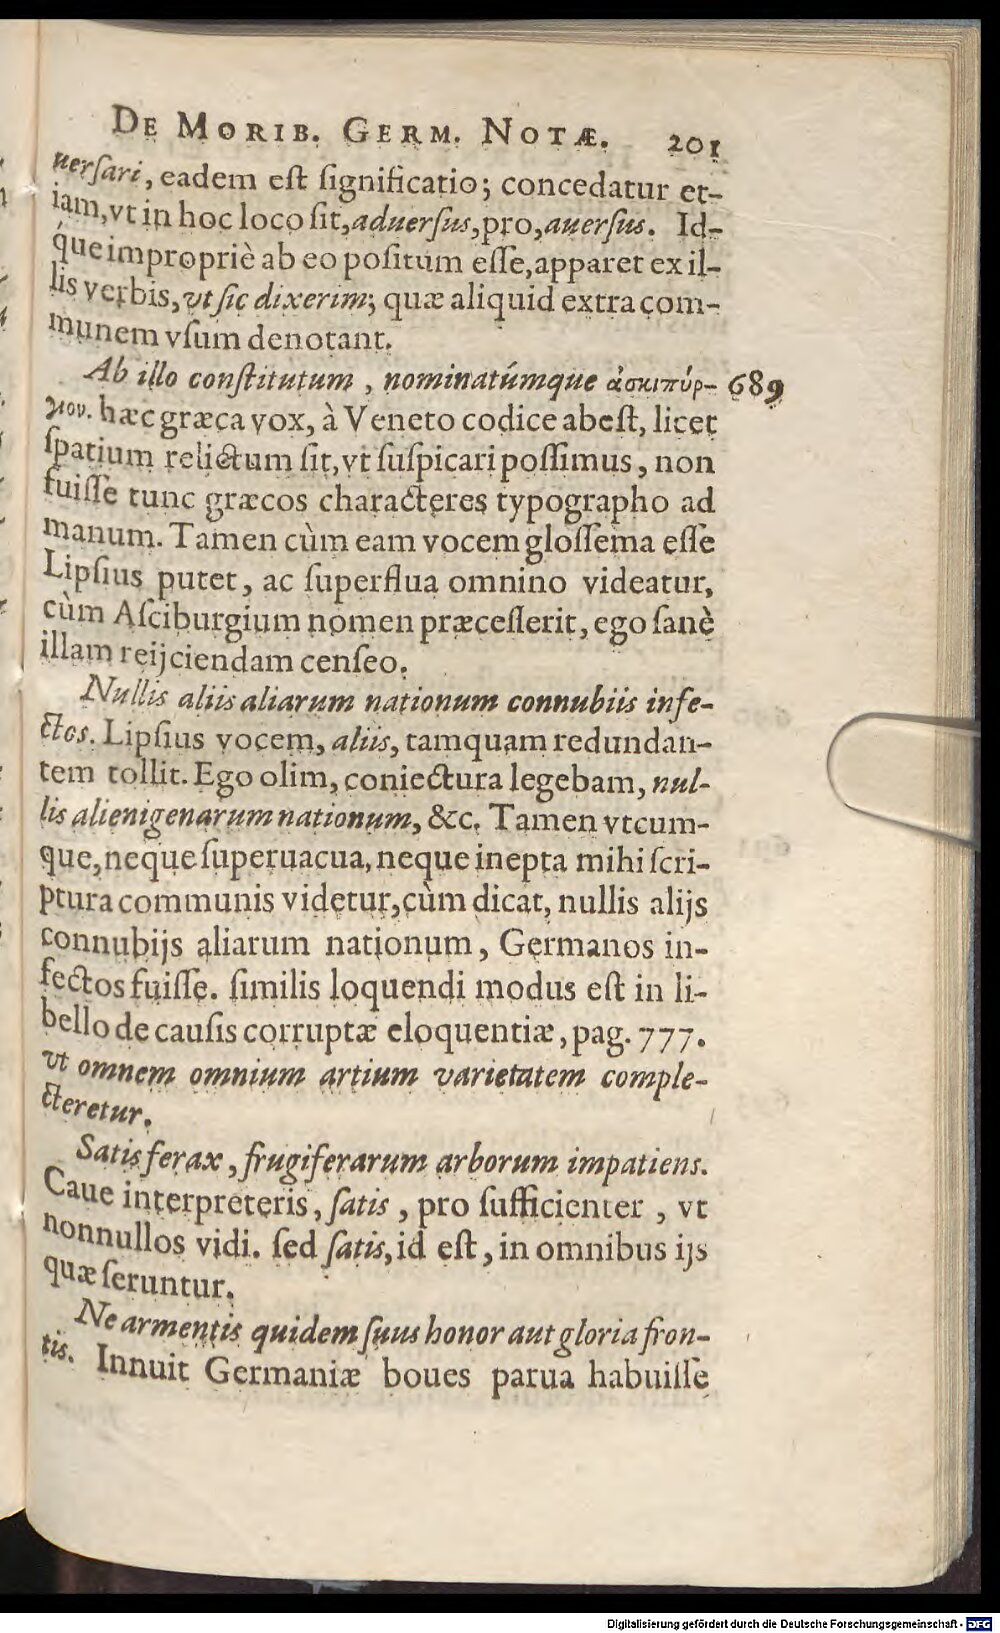 DE MORIB. GERM. NOTÆ. 201
uerſari, eadem eſt ſignificatio; concedatur et-
iam, vt in hoc loco ſit, aduerſus, pro, auerſus. Id-
que impropriè ab eo poſitum eſſe, apparet ex il-
lis verbis, vt ſic dixerim; quæ aliquid extra com-
munem vſum denotant.
Ab illo conſtitutum, nominatúmque ἀσκιπύρ- 689
γιον. hæc græca vox, à Veneto codice abeſt, licet
ſpatium relictum ſit, vt ſuſpicari poſſimus, non
fuiſſe tunc græcos characteres typographo ad
manum. Tamen cùm eam vocem gloſſema eſſe
Lipſius putet, ac ſuperflua omnino videatur,
cùm Aſciburgium nomen præceſſerit, ego ſanè
illam reijciendam cenſeo.
Nullis aliis aliarum nationum connubiis infe-
ctos. Lipſius vocem, aliis, tamquam redundan-
tem tollit. Ego olim, coniectura legebam, nul-
lis alienigenarum nationum, &c. Tamen vtcum-
que, neque ſuperuacua, neque inepta mihi ſcri-
ptura communis videtur, cùm dicat, nullis alijs
connubijs aliarum nationum, Germanos in-
fectos fuiſſe. ſimilis loquendi modus eſt in li-
bello de cauſis corruptæ eloquentiæ, pag. 777.
vt omnem omnium artium varietatem comple-
cteretur.
Satis ferax, frugiferarum arborum impatiens.
Caue interpreteris, ſatis, pro ſufficienter, vt
nonnullos vidi. ſed ſatis, id eſt, in omnibus ijs
quæ ſeruntur.
Ne armentis quidem ſuus honor aut gloria fron-
tis. Innuit Germaniæ boues parua habuiſſe
Digitalisierung gefördert durch die Deutsche Forschungsgemeinschaft - DFG